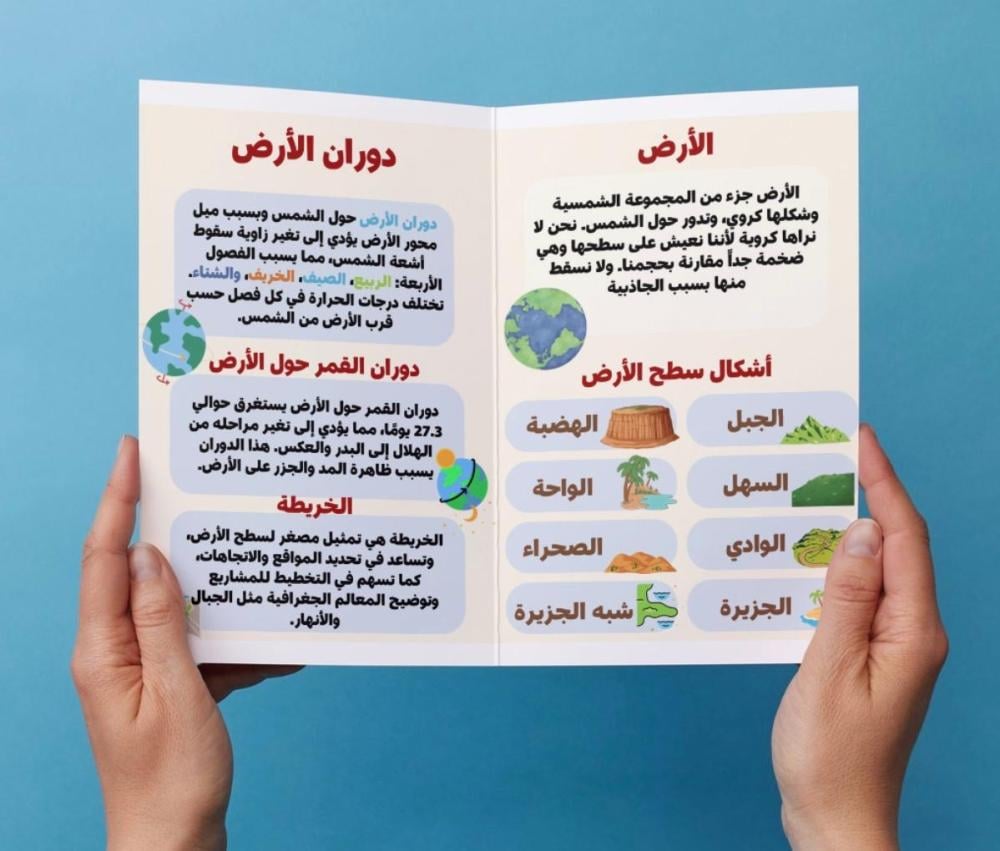 الأرض
الأرض جزء من المجموعة الشمسية
وشكلها كروي، وتدور حول الشمس. نحن لا
نراها كروية لأننا نعيش على سطحها وهي
ضخمة جداً مقارنة بحجمنا. ولا نسقط
منها بسبب الجاذبية
أشكال سطح الأرض
الجبل
الهضبة
السهل
الواحة
الوادي
الصحراء
الجزيرة
شبه الجزيرة
دوران الأرض
دوران الأرض حول الشمس وبسبب ميل
محور الأرض يؤدي إلى تغير زاوية سقوط
أشعة الشمس، مما يسبب الفصول
الأربعة: الربيع، الصيف، الخريف، والشتاء.
تختلف درجات الحرارة في كل فصل حسب
قرب الأرض من الشمس.
دوران القمر حول الأرض
دوران القمر حول الأرض يستغرق حوالي
27.3 يومًا، مما يؤدي إلى تغير مراحله من
الهلال إلى البدر والعكس. هذا الدوران
يسبب ظاهرة المد والجزر على الأرض.
الخريطة
الخريطة هي تمثيل مصغر لسطح الأرض،
وتساعد في تحديد المواقع والاتجاهات،
كما تسهم في التخطيط للمشاريع
وتوضيح المعالم الجغرافية مثل الجبال
والأنهار.